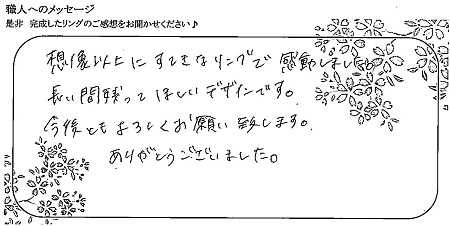 職人へのメッセージ
是非 完成したリングのご感想をお聞かせください♪
想像以上にすてきなリングで感動しました。
長い間残ってほしいデザインです。
今後ともよろしくお願い致します。
ありがとうございました。